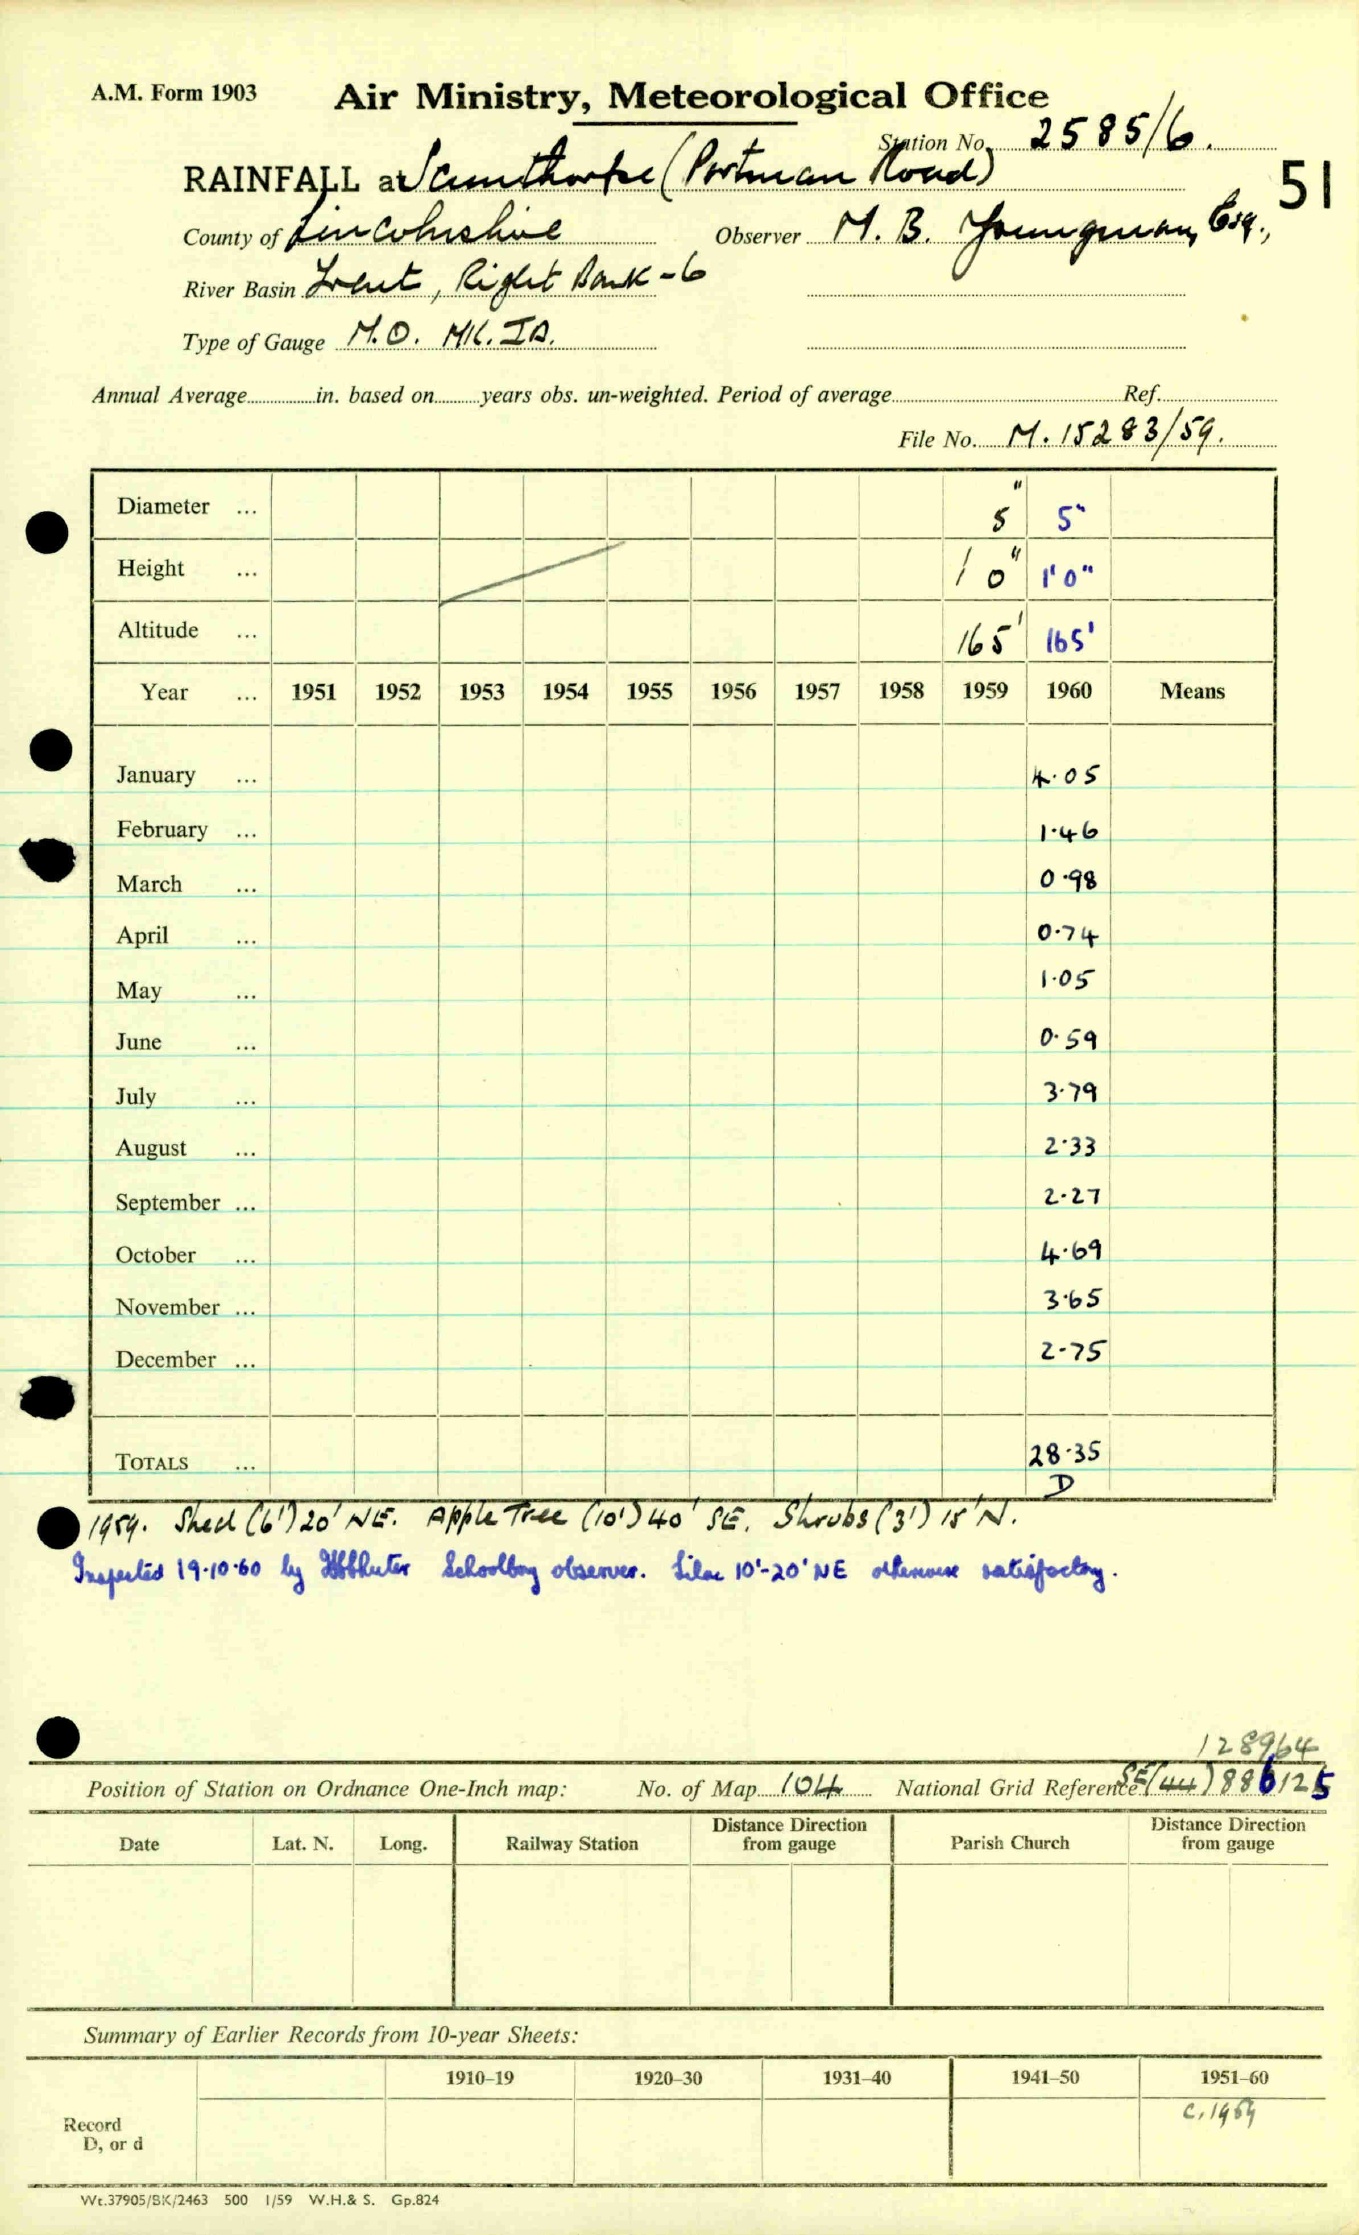 A.M. Form 1903 Air Ministry, Meteorological Office
Station No. 2585/6.
RAINFALL at Scunthorpe (Portman Road) 51
County of Lincolnshire Observer M. B. Youngman, Esq.,
River Basin Trent, Right Bank - 6
Type of Gauge M.O. MK. IA.
Annual Average in. based on years obs. un-weighted. Period of average Ref.
File No. M. 15283/59.
Diameter ... 5" 5"
Height ... 1' 0" 1' 0"
Altitude ... 165' 165'
Year ... 1951 1952 1953 1954 1955 1956 1957 1958 1959 1960 Means
January ... 4.05
February ... 1.46
March ... 0.98
April ... 0.74
May ... 1.05
June ... 0.59
July ... 3.79
August ... 2.33
September ... 2.27
October ... 4.69
November ... 3.65
December ... 2.75
TOTALS ... 28.35
D
1959. Shed (6') 20' NE. Apple Tree (10') 40' SE. Shrubs (3') 15' N.
Inspected 19.10.60 by Schoolboy observer. Lilac 10'-20' NE otherwise satisfactory.
128964
Position of Station on Ordnance One-Inch map: No. of Map 104 National Grid Reference SE (44) 886125
Date Lat. N. Long. Railway Station Distance Direction from gauge Parish Church Distance Direction from gauge
Summary of Earlier Records from 10-year Sheets:
1910–19 1920–30 1931–40 1941–50 1951–60
Record
D, or d
c. 1959
Wt.37905/BK/2463 500 1/59 W.H.& S. Gp.824